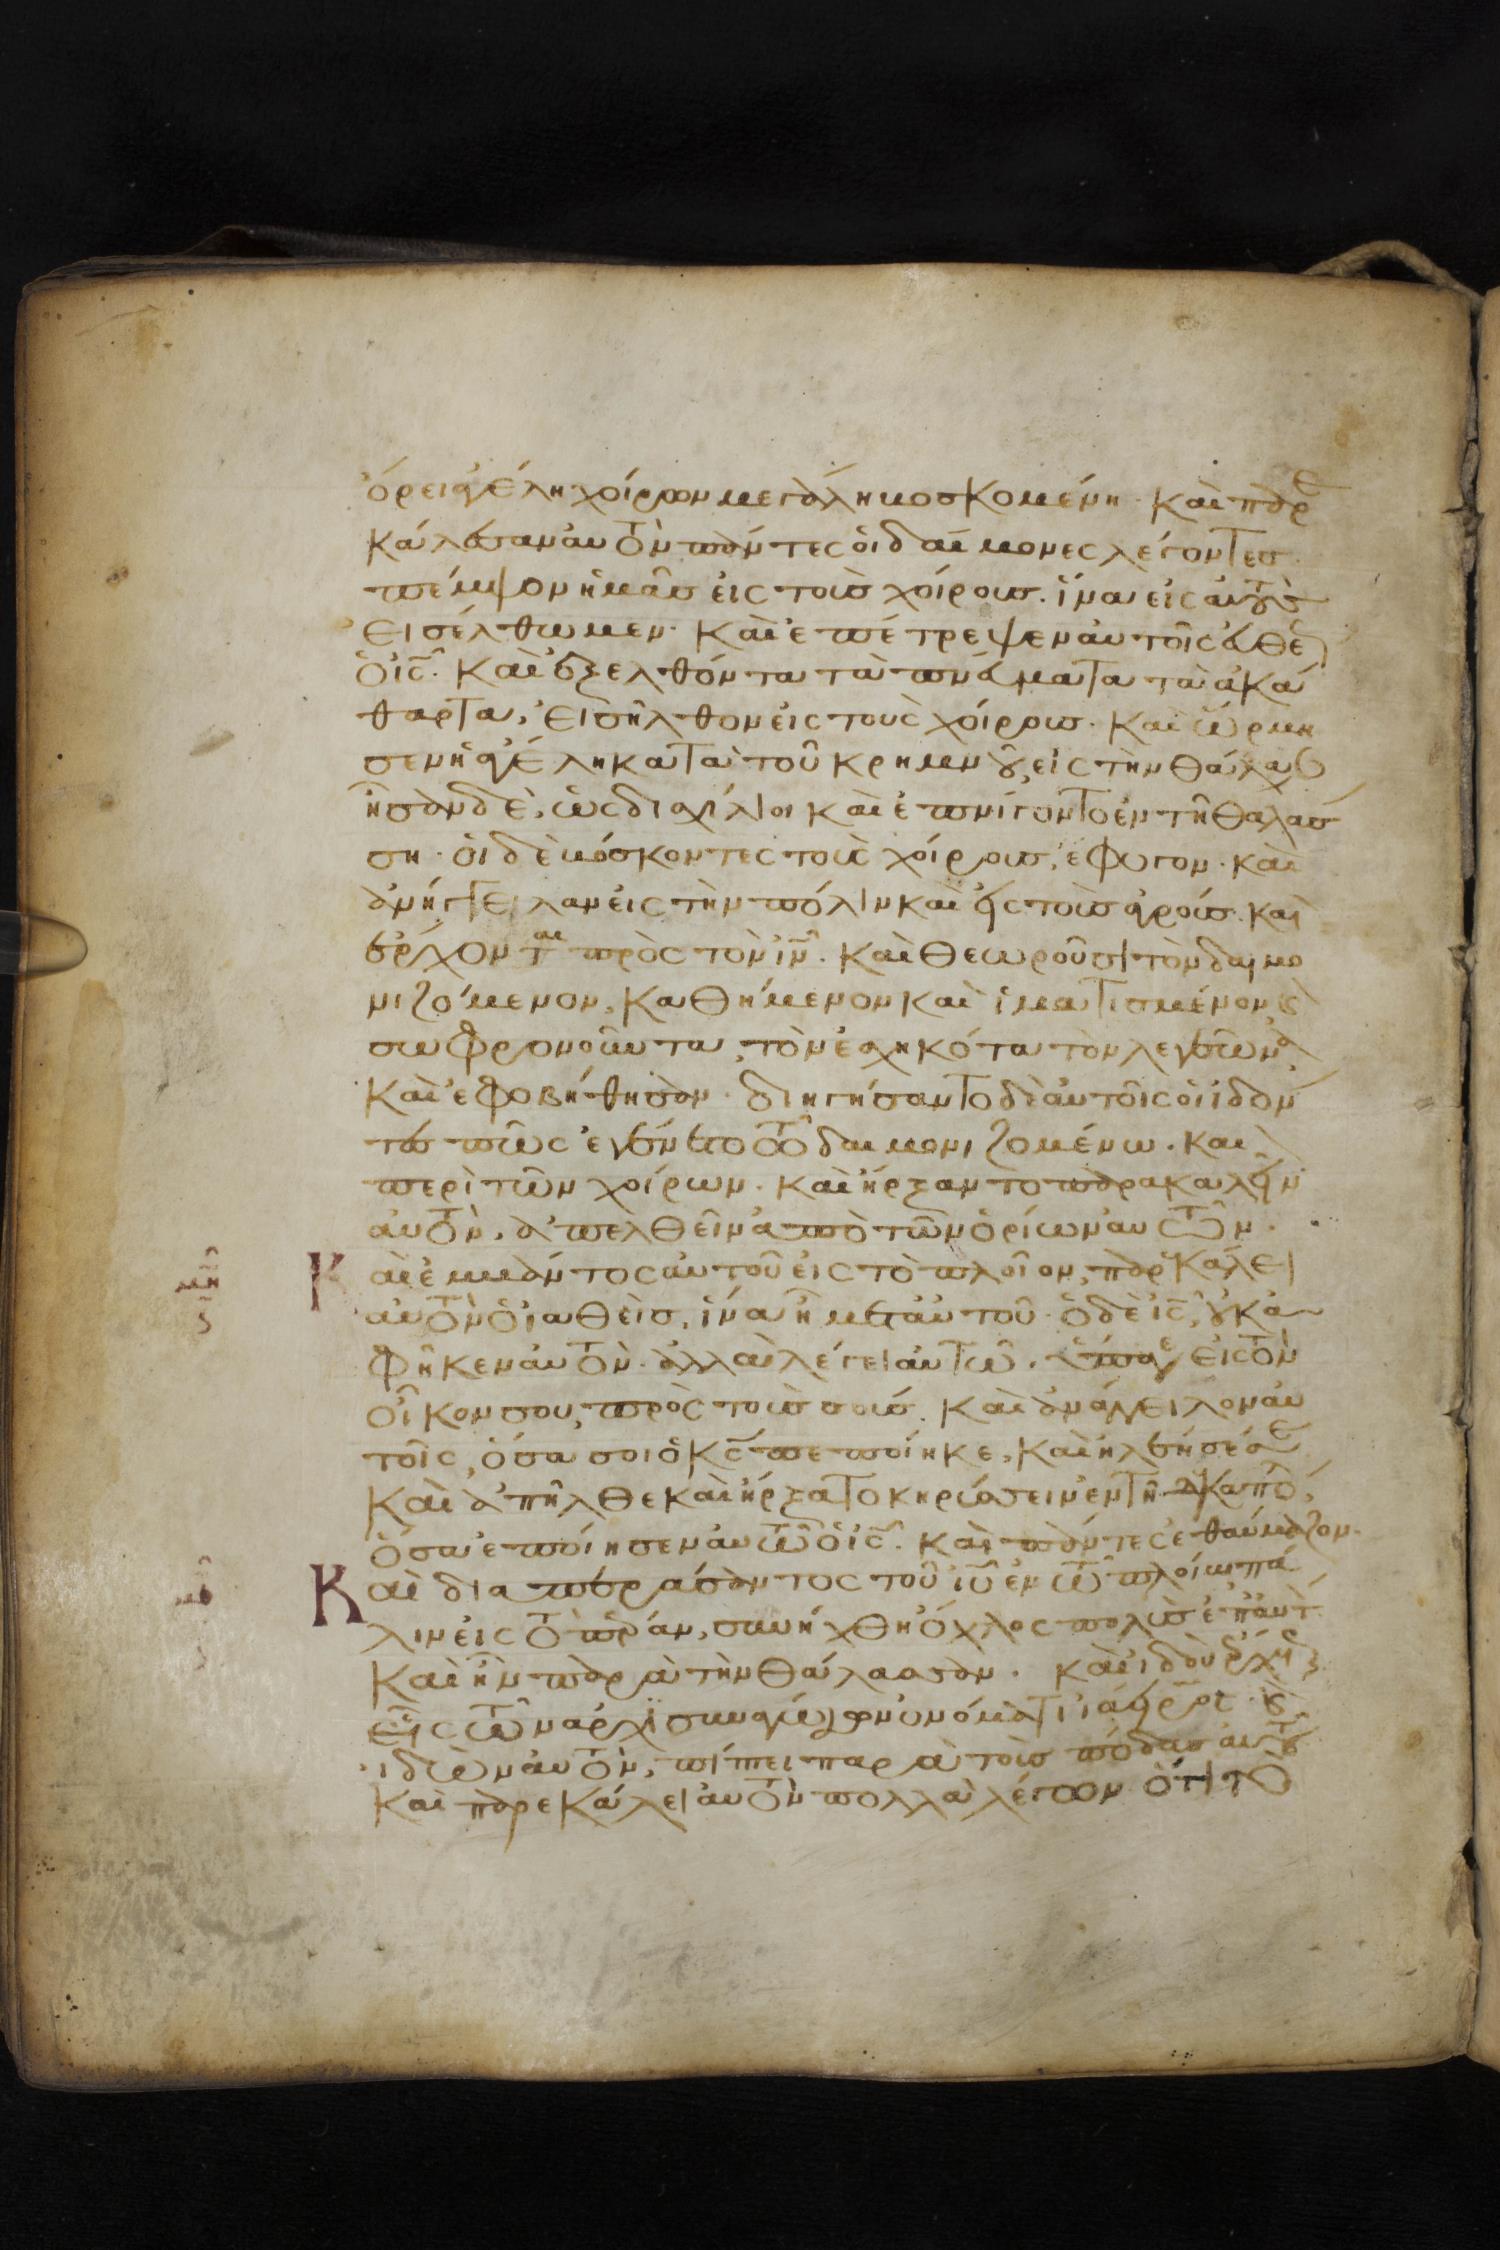 ὄρει ἀγέλη χοίρων μεγάλη βοσκομένη· καὶ παρε
κάλεσαν αὐτὸν πάντες οἱ δαίμονες λέγοντες·
πέμψον ἡμᾶς εἰς τοὺς χοίρους. ἵνα εἰς αὐτοὺς
εἰσέλθωμεν· καὶ ἐπέτρεψεν αὐτοῖς εὐθέ
ὁ ις̅· καὶ ἐξελθόντα τὰ πνεύματα τὰ ἀκά
θαρτα, εἰσῆλθον εἰς τοὺς χοίρους· καὶ ὥρμη
σεν ἡ ἀγέλη κατὰ τοῦ κρημνοῦ εἰς τὴν θάλασ
ἦσαν δὲ, ὡς δισχίλιοι καὶ ἐπνίγοντο ἐν τῇ θαλάσ
ση· οἱ δὲ βόσκοντες τοὺς χοίρους, ἔφυγον· καὶ
ἀνήγγειλαν εἰς τὴν πόλιν καὶ εἰς τοὺς ἀγρούς· καὶ
ἔρχονται πρὸς τὸν ιν̅· καὶ θεωροῦσι τὸν δαιμο
νιζόμενον, καθήμενον καὶ ἱματισμένον καὶ
σωφρονοῦντα, τὸν ἐσχηκότα τὸν λεγεῶνα
καὶ ἐφοβήθησαν· διηγήσαντο δὲ αὐτοῖς οἱ ἰδόν
τες πῶς ἐγένετο τῷ δαιμονιζομένω· καὶ
περὶ τῶν χοίρων· καὶ ἤρξαντο παρακαλεῖν
αὐτὸν, ἀπελθεῖν ἀπὸ τῶν ὁρίων αὐτῶν·
μη̅ Και ἐμβάντος αὐτοῦ εἰς τὸ πλοῖον, παρεκάλει
αὐτὸν ὁ ἰαθεὶς, ἵνα ᾖ μετ αὐτοῦ· ὁ δὲ ις̅, οὐκ ἀ
φῆκεν αὐτὸν· ἀλλὰ λέγει αὐτῶ· ὕπαγε εἰς τὸν
οἶκον σου, πρὸς τοὺς σούς· καὶ ἀνάγγειλον αὐ
τοῖς, ὅσα σοι ὁ κς̅ πεποίηκε, καὶ ἠλέησέ σε
καὶ ἀπῆλθε καὶ ἤρξατο κηρύσσειν ἐν τῇ δεκαπόλ
ὅσα ἐποίησεν αὐτῷ ὁ ις̅· καὶ πάντες ἐθαύμαζον·
Και διαπεράσαντος τοῦ ιυ̅ ἐν τῷ πλοίω πά
λιν εἰς τὸ πέραν, συνήχθη ὄχλος πολὺς ἐπ αὐτ
καὶ ἦν παρὰ τὴν θάλασσαν· καὶ ἰδοὺ ἔρχεται
εἷς τῶν ἀρχισυναγώγων ὀνόματι ἰάειρος· καὶ
ἰδὼν αὐτὸν, πίπτει παρὰ τοὺς πόδας αὐτοῦ
καὶ παρεκάλει αὐτὸν πολλὰ λέγων ὅτι τὸ